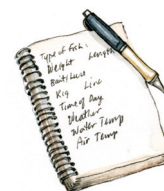 Type of Fish:
Weight Length
Bait/Lure
Rig Line
Time of Day
Weather
Water Temp
Air Temp